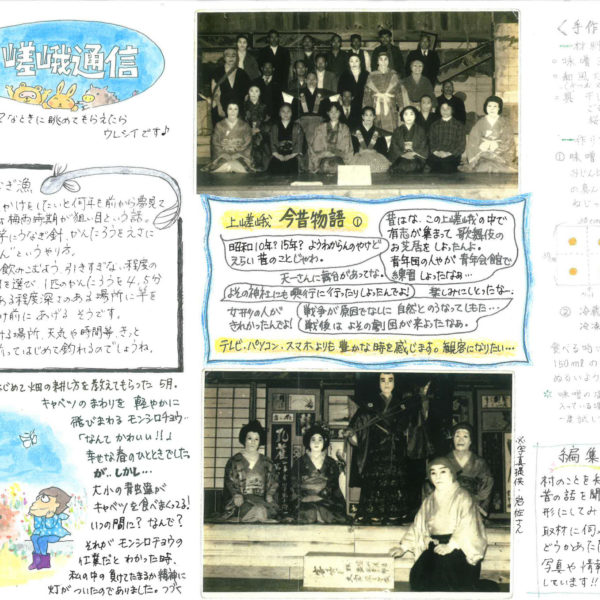 嵯峨通信
なときに眺めてもらえたら
ウレシイです♪
なぎ漁
かけをしたいと何年も前から夢見て
梅雨時期が狙い目という話。
竿にうなぎ針、かんたろうをエサに
ん”というやり方。
飲みこむよう、引きすぎない程度の
を選び 1匹のかんたろうを4,5分
ある程度深さのある場所に竿を
け前にあげる そうです。
ける場所、天気や時間等、きっと
揃ってはじめて釣れるのでしょうね。
はじめて畑の耕し方を教えてもらった 5月。
キャベツのまわりを 軽やかに
飛びまわる モンシロチョウ…
「なんて かわいい!!」
幸せな春のひとときでした
が…しかし…
大小の青虫達が
キャベツを食べまくってる!
いつの間に? なんで?
それが モンシロチョウの
仕業だと わかった時、
私の中の 負けてたまるか精神に
灯がついたのでありました。つづく
上嵯峨 今昔物語 ①
昭和10年?15年? ようわからんのやけど
えらい昔のことじゃわ。
昔はな、この上嵯峨の中で
有志が集まって 歌舞伎の
お芝居をしよったんよ。
青年団の人やが 青年会館で
練習しよったなぁ…
天一さんに舞台があってな。
よその神社にも興行に行ったりしよったんでよ!
楽しみにしとったな…
女形の人が
きれかったんでよ!
戦争が原因でなしに 自然とのうなってしもた…
戦後は よその劇団が来よったなぁ。
テレビ、パソコン、スマホよりも 豊かな時を感じます。観客になりたい…
※写真提供・岩佐さん
<手作
材料
・味噌
・和風だ
・具
作り
① 味噌
②
食べる時に
150mlの
味噌の
編集
村のことを
昔の話を聞
形にしてみ
取材に何
どうかあた
写真や情報
しています!!